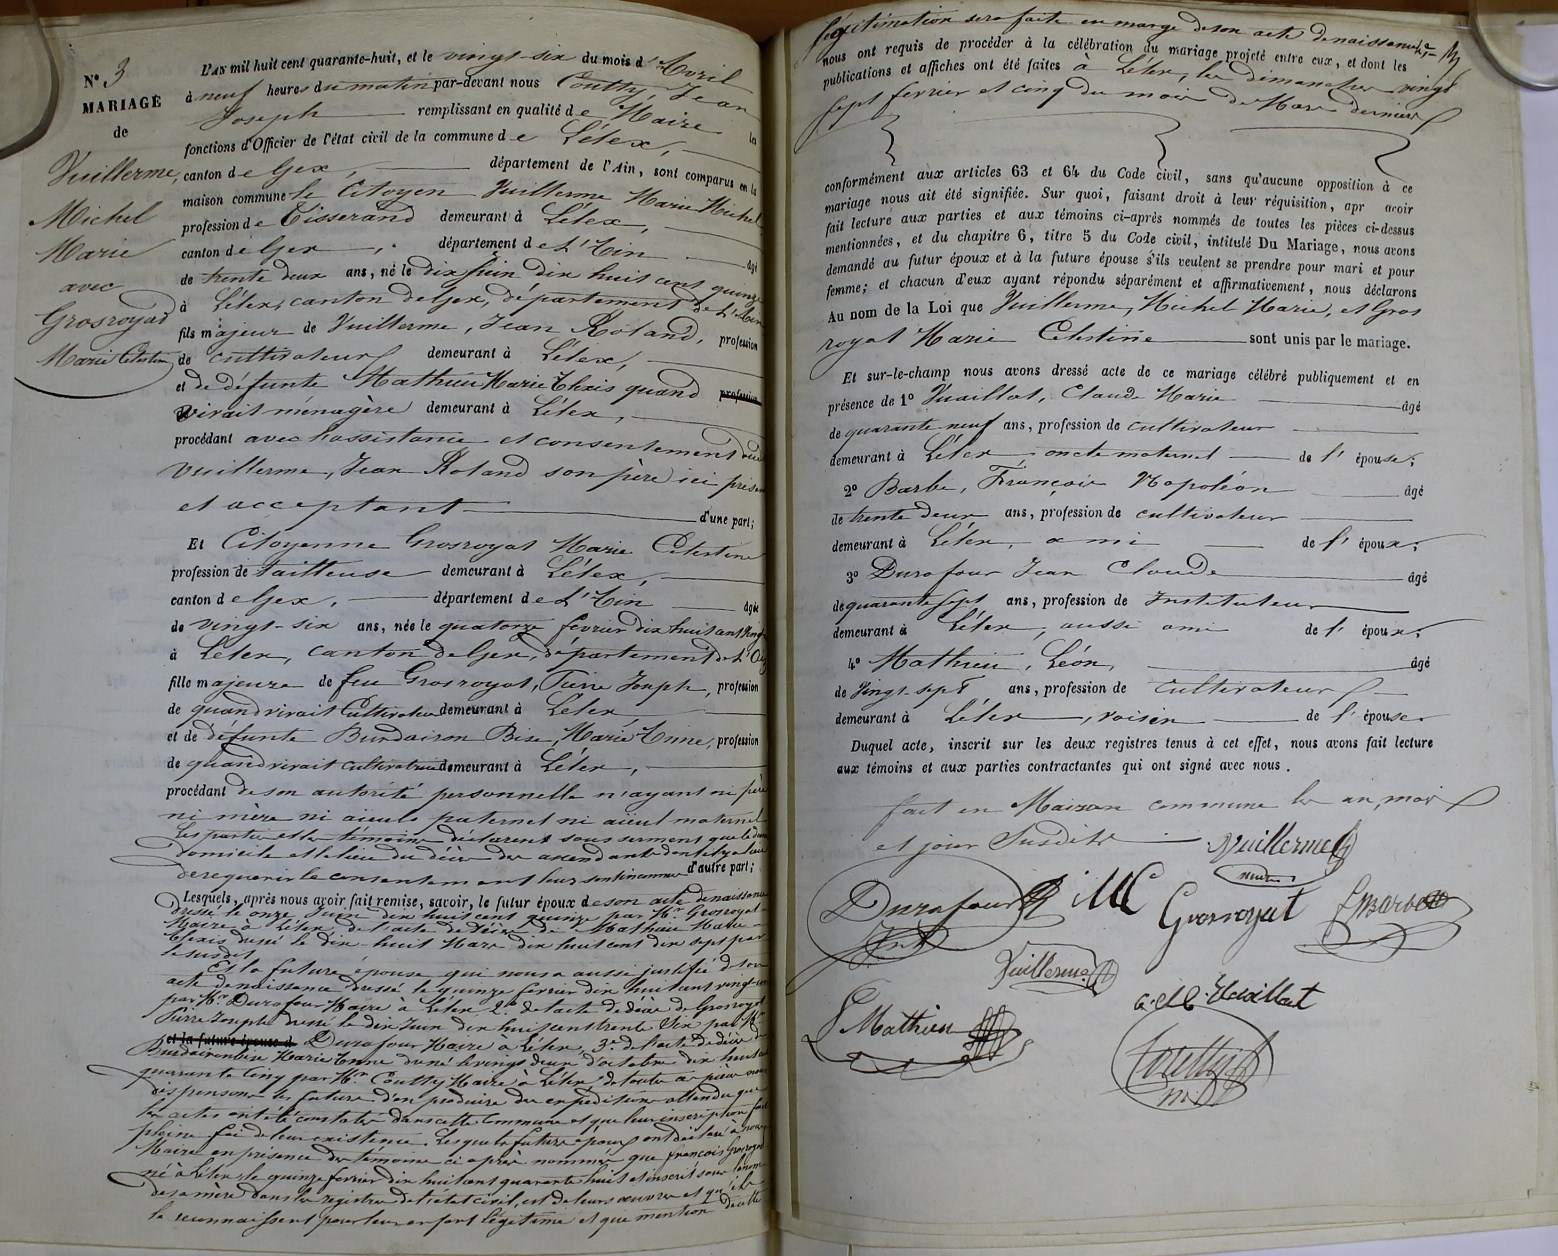 N.º 3
MARIAGE
de
Vuillerme,
Michel
Marie
avec
Grosroyat
Marie Célestine
L'AN mil huit cent quarante-huit, et le vingt-six du mois d'Avril
à neuf heures du matin par-devant nous Coutty, Jean
Joseph remplissant en qualité de Maire les
fonctions d'Officier de l'état civil de la commune de Lélex,
canton de Gex, département de l'Ain, sont comparus en la
maison commune le Citoyen Vuillerme Marie Michel
profession de Tisserand demeurant à Lélex,
canton de Gex, département de L'Ain âgé
de trente deux ans, né le dix juin dix huit cent quinze
à Lélex, canton de Gex, département de L'Ain
fils majeur de Vuillerme, Jean Roland, profession
de cultivateur demeurant à Lélex,
et de défunte Mathieu Marie Thaïs quand profession
vivait ménagère demeurant à Lélex,
procédant avec l'assistance et consentement dud
Vuillerme, Jean Roland son père ici présent
et acceptant d'une part;
Et Citoyenne Grosroyat Marie Célestine
profession de tailleuse demeurant à Lélex,
canton de Gex, département de L'Ain âgée
de vingt-six ans, née le quatorze février dix huit cent vingt
à Lélex, canton de Gex, département de L'Ain
fille majeure de feu Grosroyat, Pierre Joseph, profession
de quand vivait Cultivateur demeurant à Lélex
et de défunte Burdairon Bise, Marie Anne, profession
de quand vivait cultivatrice demeurant à Lélex,
procédant de son autorité personnelle n'ayant ni père
ni mère ni aïeuls paternel ni aïeul maternel
Les parties et les témoins déclarent sous serment que le dernier
domicile et le lieu du décès des ascendants dont il y a lieu
de requérir le consentement leur sont inconnus d'autre part;
Lesquels, après nous avoir fait remise, savoir, le futur époux de son acte de naissance
dressé le onze Juin dix huit cent quinze par Mr. Grosroyat
Maire à Lélex, de l'acte de décès de Mathieu Marie
Thaïs dressé le dix-huit Mars dix huit cent dix sept par
le susdit
Et la future épouse qui nous a aussi justifié de son
acte de naissance dressé le quinze février dix huit cent vingt-
par Mr. Durafour Maire à Lélex 2.º de l'acte de décès de Grosroyat
Pierre Joseph dressé le dix Juin dix huit cent trente par Mr.
et la future épouse d Durafour Maire à Lélex, 3.º de l'acte de décès de
Burdairon Bise Marie Anne dressé le vingt deux d'octobre dix huit cent
quarante cinq par Mr. Coutty Maire à Lélex, de toutes ces pièces nous
dispensons les futurs d'en produire des expéditions attendu que
les actes ont été constatés dans cette Commune et que leur inscription fait
pleine foi de leur existence. Lesquels futurs époux ont déclaré à nous
Maire en présence des témoins ci-après nommés que françois Grosroyat
né à Lélex, le quinze février dix huit cent quarante huit et inscrit sous le nom
de sa mère dans le registre de l'état civil, est de leurs œuvres et qu'ils
le reconnaissent pour leur enfant légitime et que mention de cette
légitimation sera faite en marge de son acte de naissance,
nous ont requis de procéder à la célébration du mariage projeté entre eux, et dont les
publications et affiches ont été faites à Lélex, les dimanches vingt
sept février et cinq du mois de Mars dernier
conformément aux articles 63 et 64 du Code civil, sans qu'aucune opposition à ce
mariage nous ait été signifiée. Sur quoi, faisant droit à leur réquisition, apr avoir
fait lecture aux parties et aux témoins ci-après nommés de toutes les pièces ci-dessus
mentionnées, et du chapitre 6, titre 5 du Code civil, intitulé Du Mariage, nous avons
demandé au futur époux et à la future épouse s'ils veulent se prendre pour mari et pour
femme; et chacun d'eux ayant répondu séparément et affirmativement, nous déclarons
Au nom de la Loi que Vuillerme, Michel Marie, et Gros
royat Marie Célestine sont unis par le mariage.
Et sur-le-champ nous avons dressé acte de ce mariage célébré publiquement et en
présence de 1º Vuaillat, Claude Marie âgé
de quarante neuf ans, profession de cultivateur
demeurant à Lélex oncle maternel de l'épouse;
2º Barbe, François Napoléon âgé
de trente deux ans, profession de cultivateur
demeurant à Lélex, ami de l'époux;
3º Durafour Jean Claude âgé
de quarante sept ans, profession de Instituteur
demeurant à Lélex, aussi ami de l'époux;
4º Mathieu, Léon, âgé
de vingt-sept ans, profession de cultivateur
demeurant à Lélex, voisin de l'épouse.
Duquel acte, inscrit sur les deux registres tenus à cet effet, nous avons fait lecture
aux témoins et aux parties contractantes qui ont signé avec nous.
fait en Maison commune les an, mois
et jour Susdits
Vuillerme
Durafour
Inst
MC
Grosroyat
Barbe
Vuillerme
L Mathieu
Vuaillat
Coutty